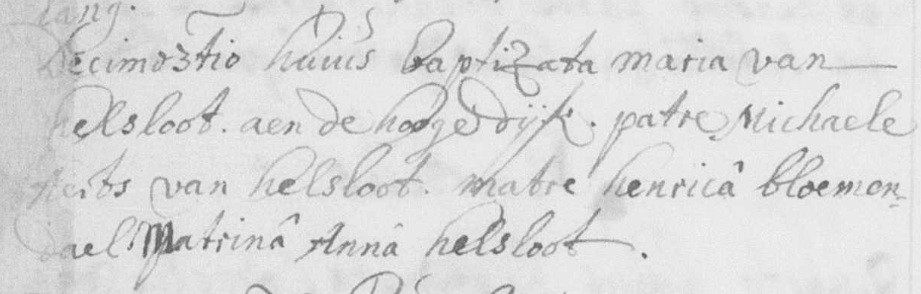 lang.
Decimo3tio huius baptizata maria van
helsloot. aen de hooge dijk. patre Michaele
Aerts van helsloot. matre henricâ bloemen-
dael Matrinâ Annâ helsloot.